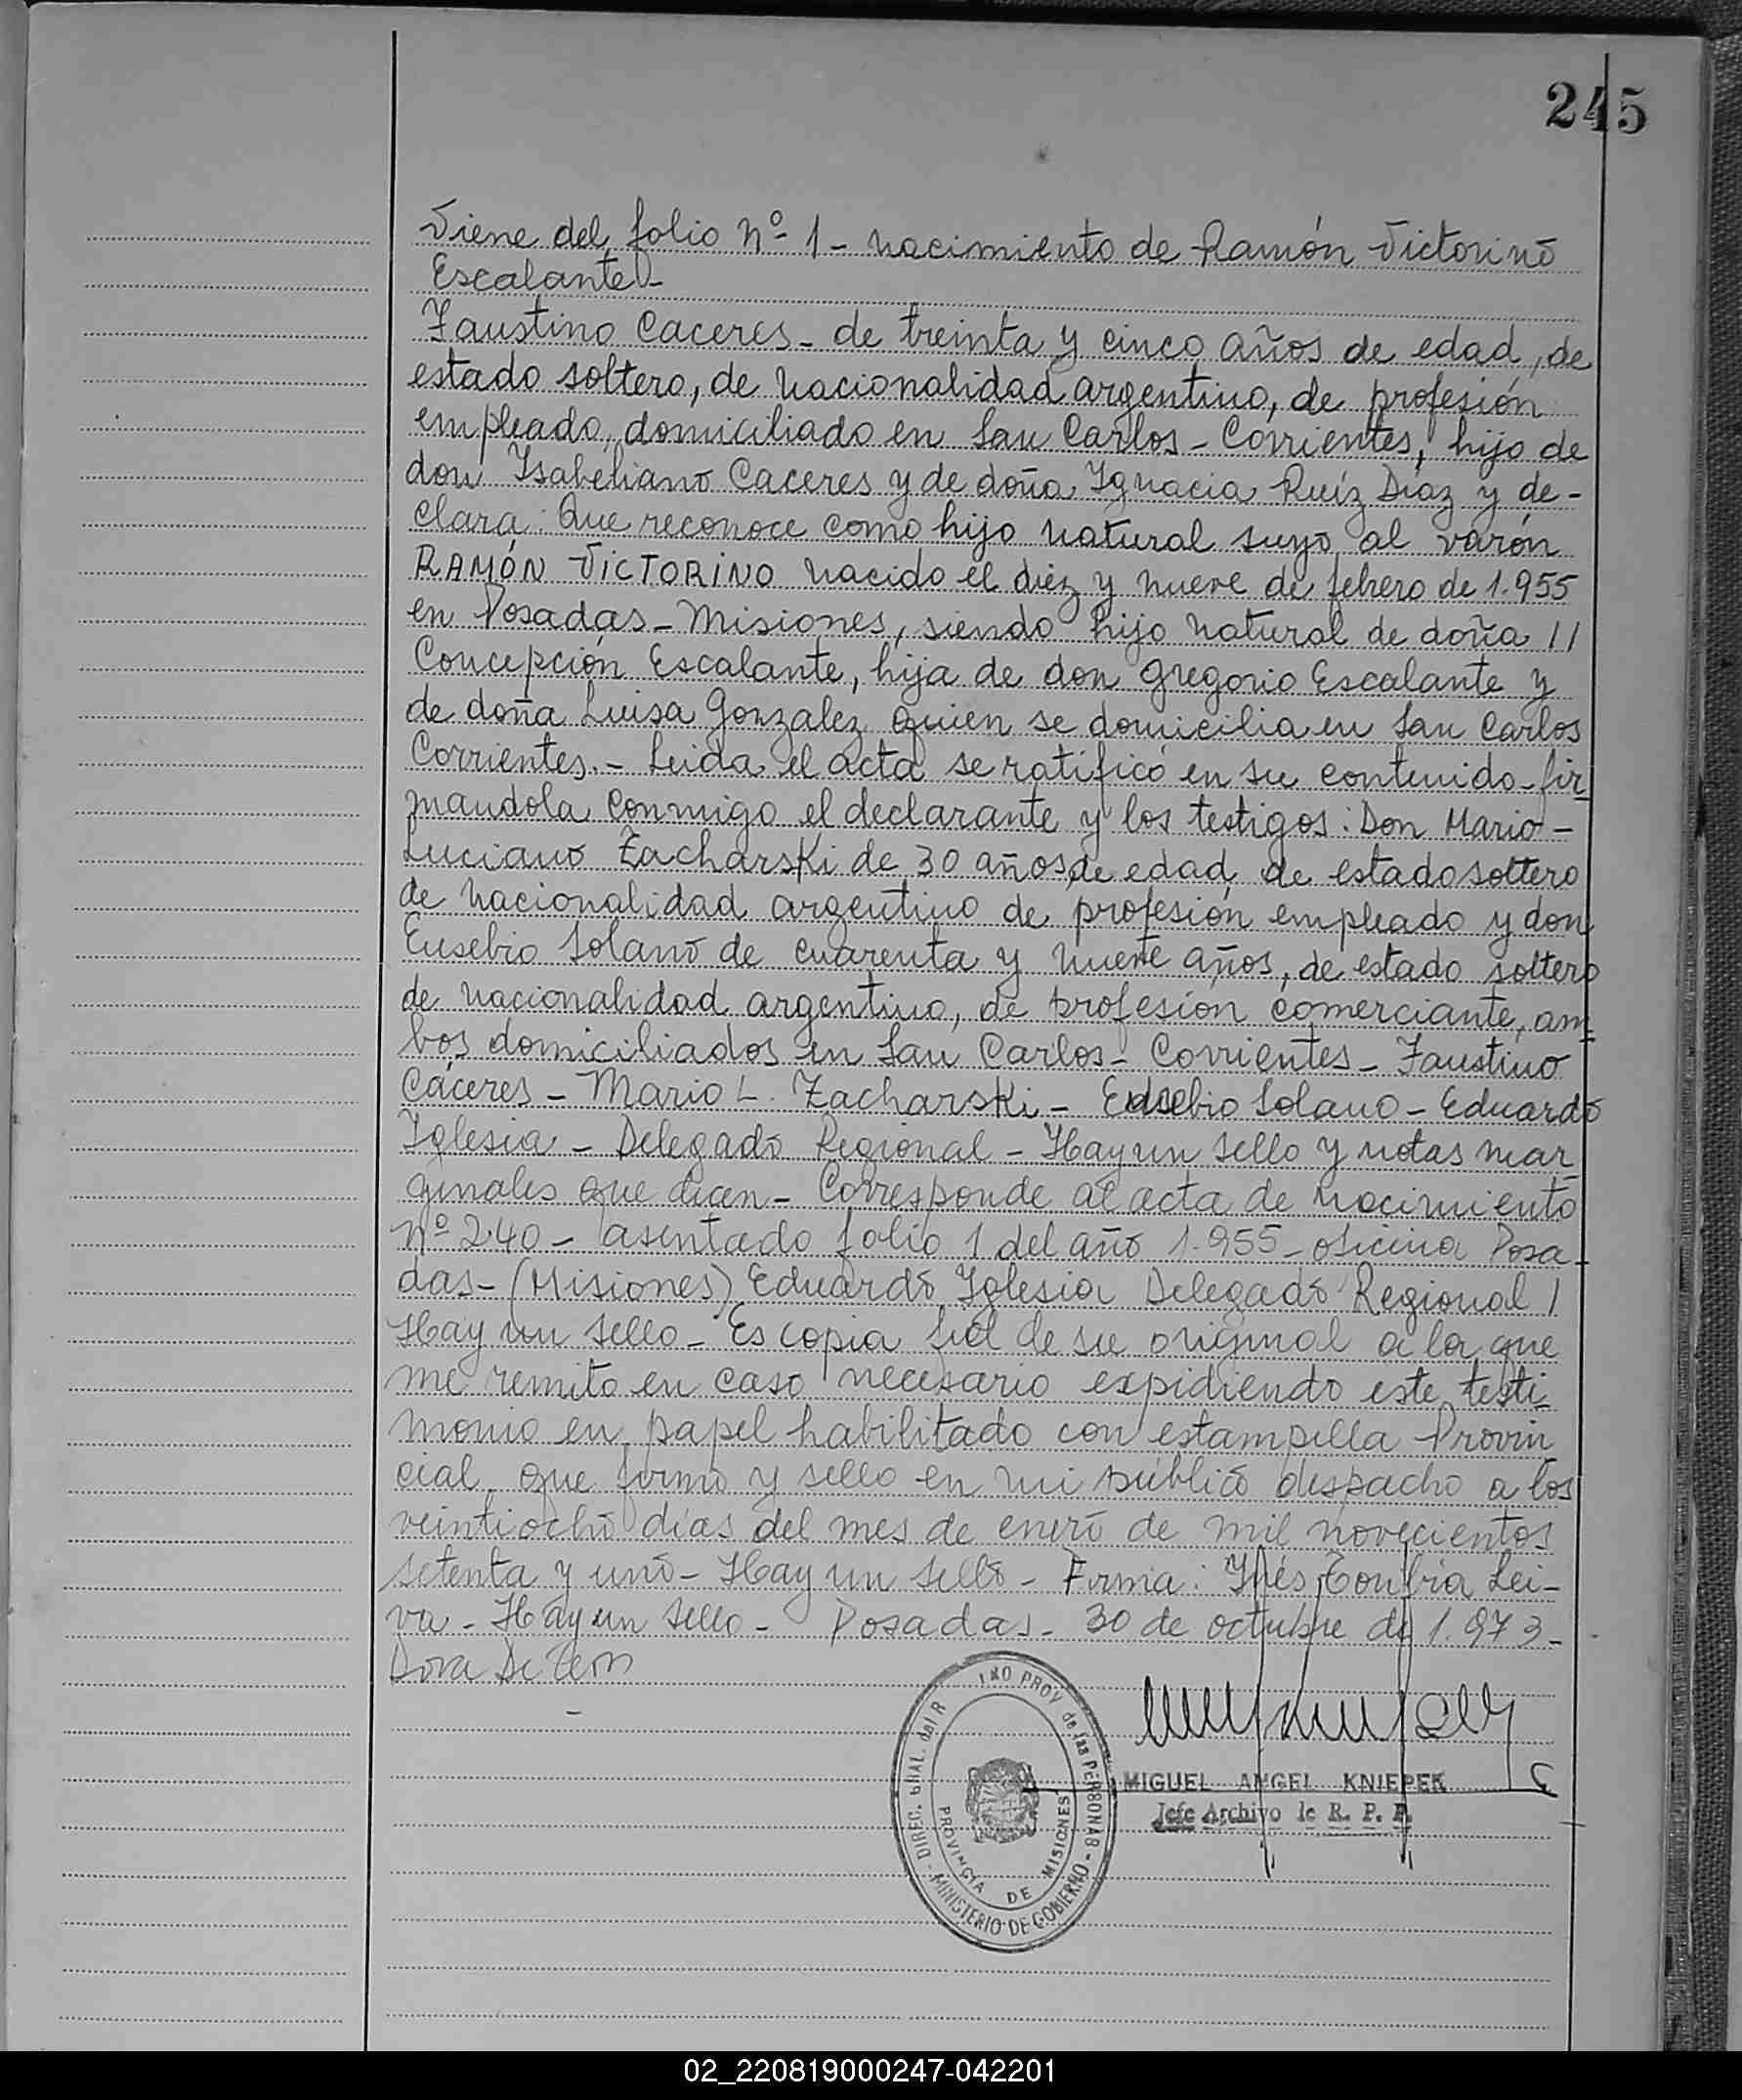 245
Viene del folio Nº 1 - nacimiento de Ramón Victorino
Escalante -
Faustino Caceres - de treinta y cinco años de edad, de
estado soltero, de nacionalidad argentino, de profesión
empleado, domiciliado en San Carlos - Corrientes, hijo de
don Isabeliano Caceres y de doña Ignacia Ruíz Diaz y de-
clara: Que reconoce como hijo natural suyo al varón
RAMÓN VICTORINO nacido el diez y nueve de febrero de 1.955
en Posadas - Misiones, siendo hijo natural de doña //
Concepción Escalante, hija de don Gregorio Escalante y
de doña Luisa Gonzalez quien se domicilia en San Carlos
Corrientes. - Leida el acta se ratificó en su contenido - fir-
mandola conmigo el declarante y los testigos: Don Mario -
Luciano Zacharski de 30 años de edad de estado soltero
de nacionalidad argentino de profesión empleado y don
Eusebio Solano de cuarenta y nueve años, de estado soltero
de nacionalidad argentino, de profesión comerciante, am-
bos domiciliados en San Carlos - Corrientes - Faustino
Cáceres - Mario L. Zacharski - Eusebio Solano - Eduardo
Iglesia - Delegado Regional - Hay un sello y notas mar-
ginales que dicen - Corresponde al acta de nacimiento
Nº 240 - asentado folio 1 del año 1.955 - oficina Posa-
das - (Misiones) Eduardo Iglesia Delegado Regional /
Hay un sello - Es copia fiel de su original a la que
me remito en caso necesario expidiendo este testi-
monio en papel habilitado con estampilla Provin
cial que firmo y sello en mi público despacho a los
veintiocho días del mes de enero de mil novecientos
setenta y uno - Hay un sello - Firma: Inés Lei-
va - Hay un sello - Posadas - 30 de octubre de 1.973 -
DIREC. GRAL. del R PROV de las PERSONAS - MINISTERIO DE GOBIERNO -
PROVINCIA DE MISIONES
MIGUEL ANGEL KNIEPEK
Jefe Archivo de R. P. P.
02_220819000247-042201